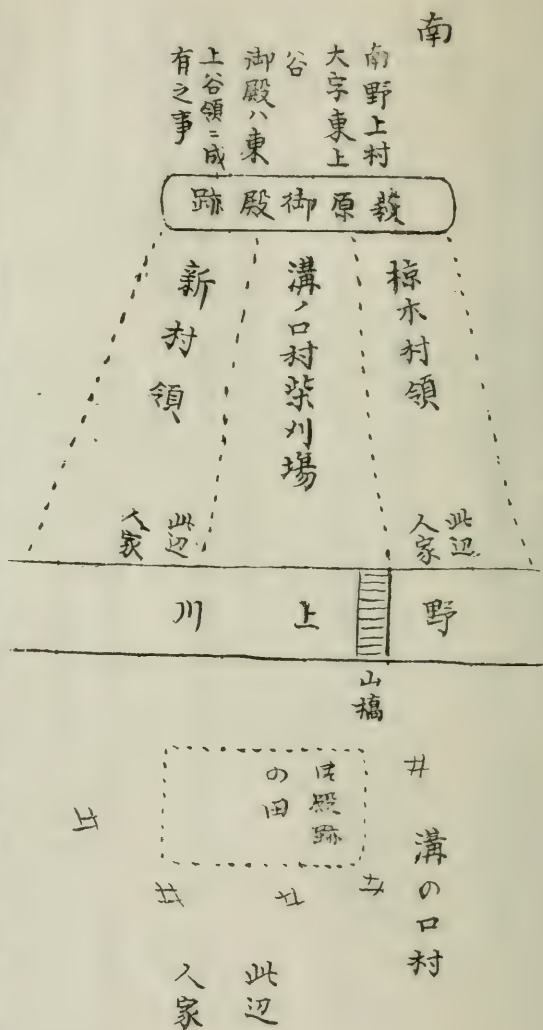 南
南野上村
大字東上
谷
御殿ハ東
上谷領ニ成
有之事
義原御殿跡
椋木村領
溝ノ口村柴刈場
新村領
此辺
人家
此辺
人家
野上川
山橋
御殿跡
の田
溝の口村
此辺
人家